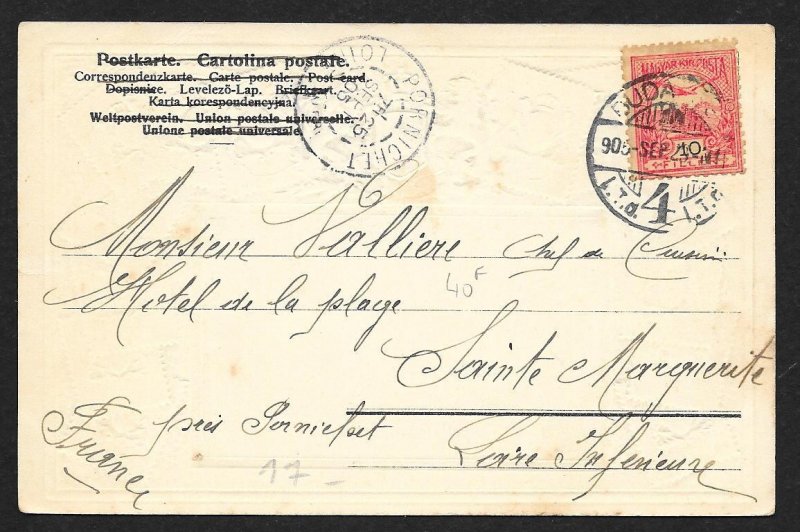 Postkarte. Cartolina postale.
Correspondenzkarte. Carte postale. Post card.
Dopisnice. Levelező-Lap. Briefkaart.
Karta korespondencyjna.
Weltpostverein. Union postale universelle.
Unione postale universale.
PORNICHET LOIRE
25
SEPT
05
MAGYAR KIR. POSTA
BUDA
905 SEP
10
4
Monsieur Vallière Chef de Cuisine
Hotel de la plage
40F
Sainte Marguerite
près Pornichet
Loire Inférieure
France
17-